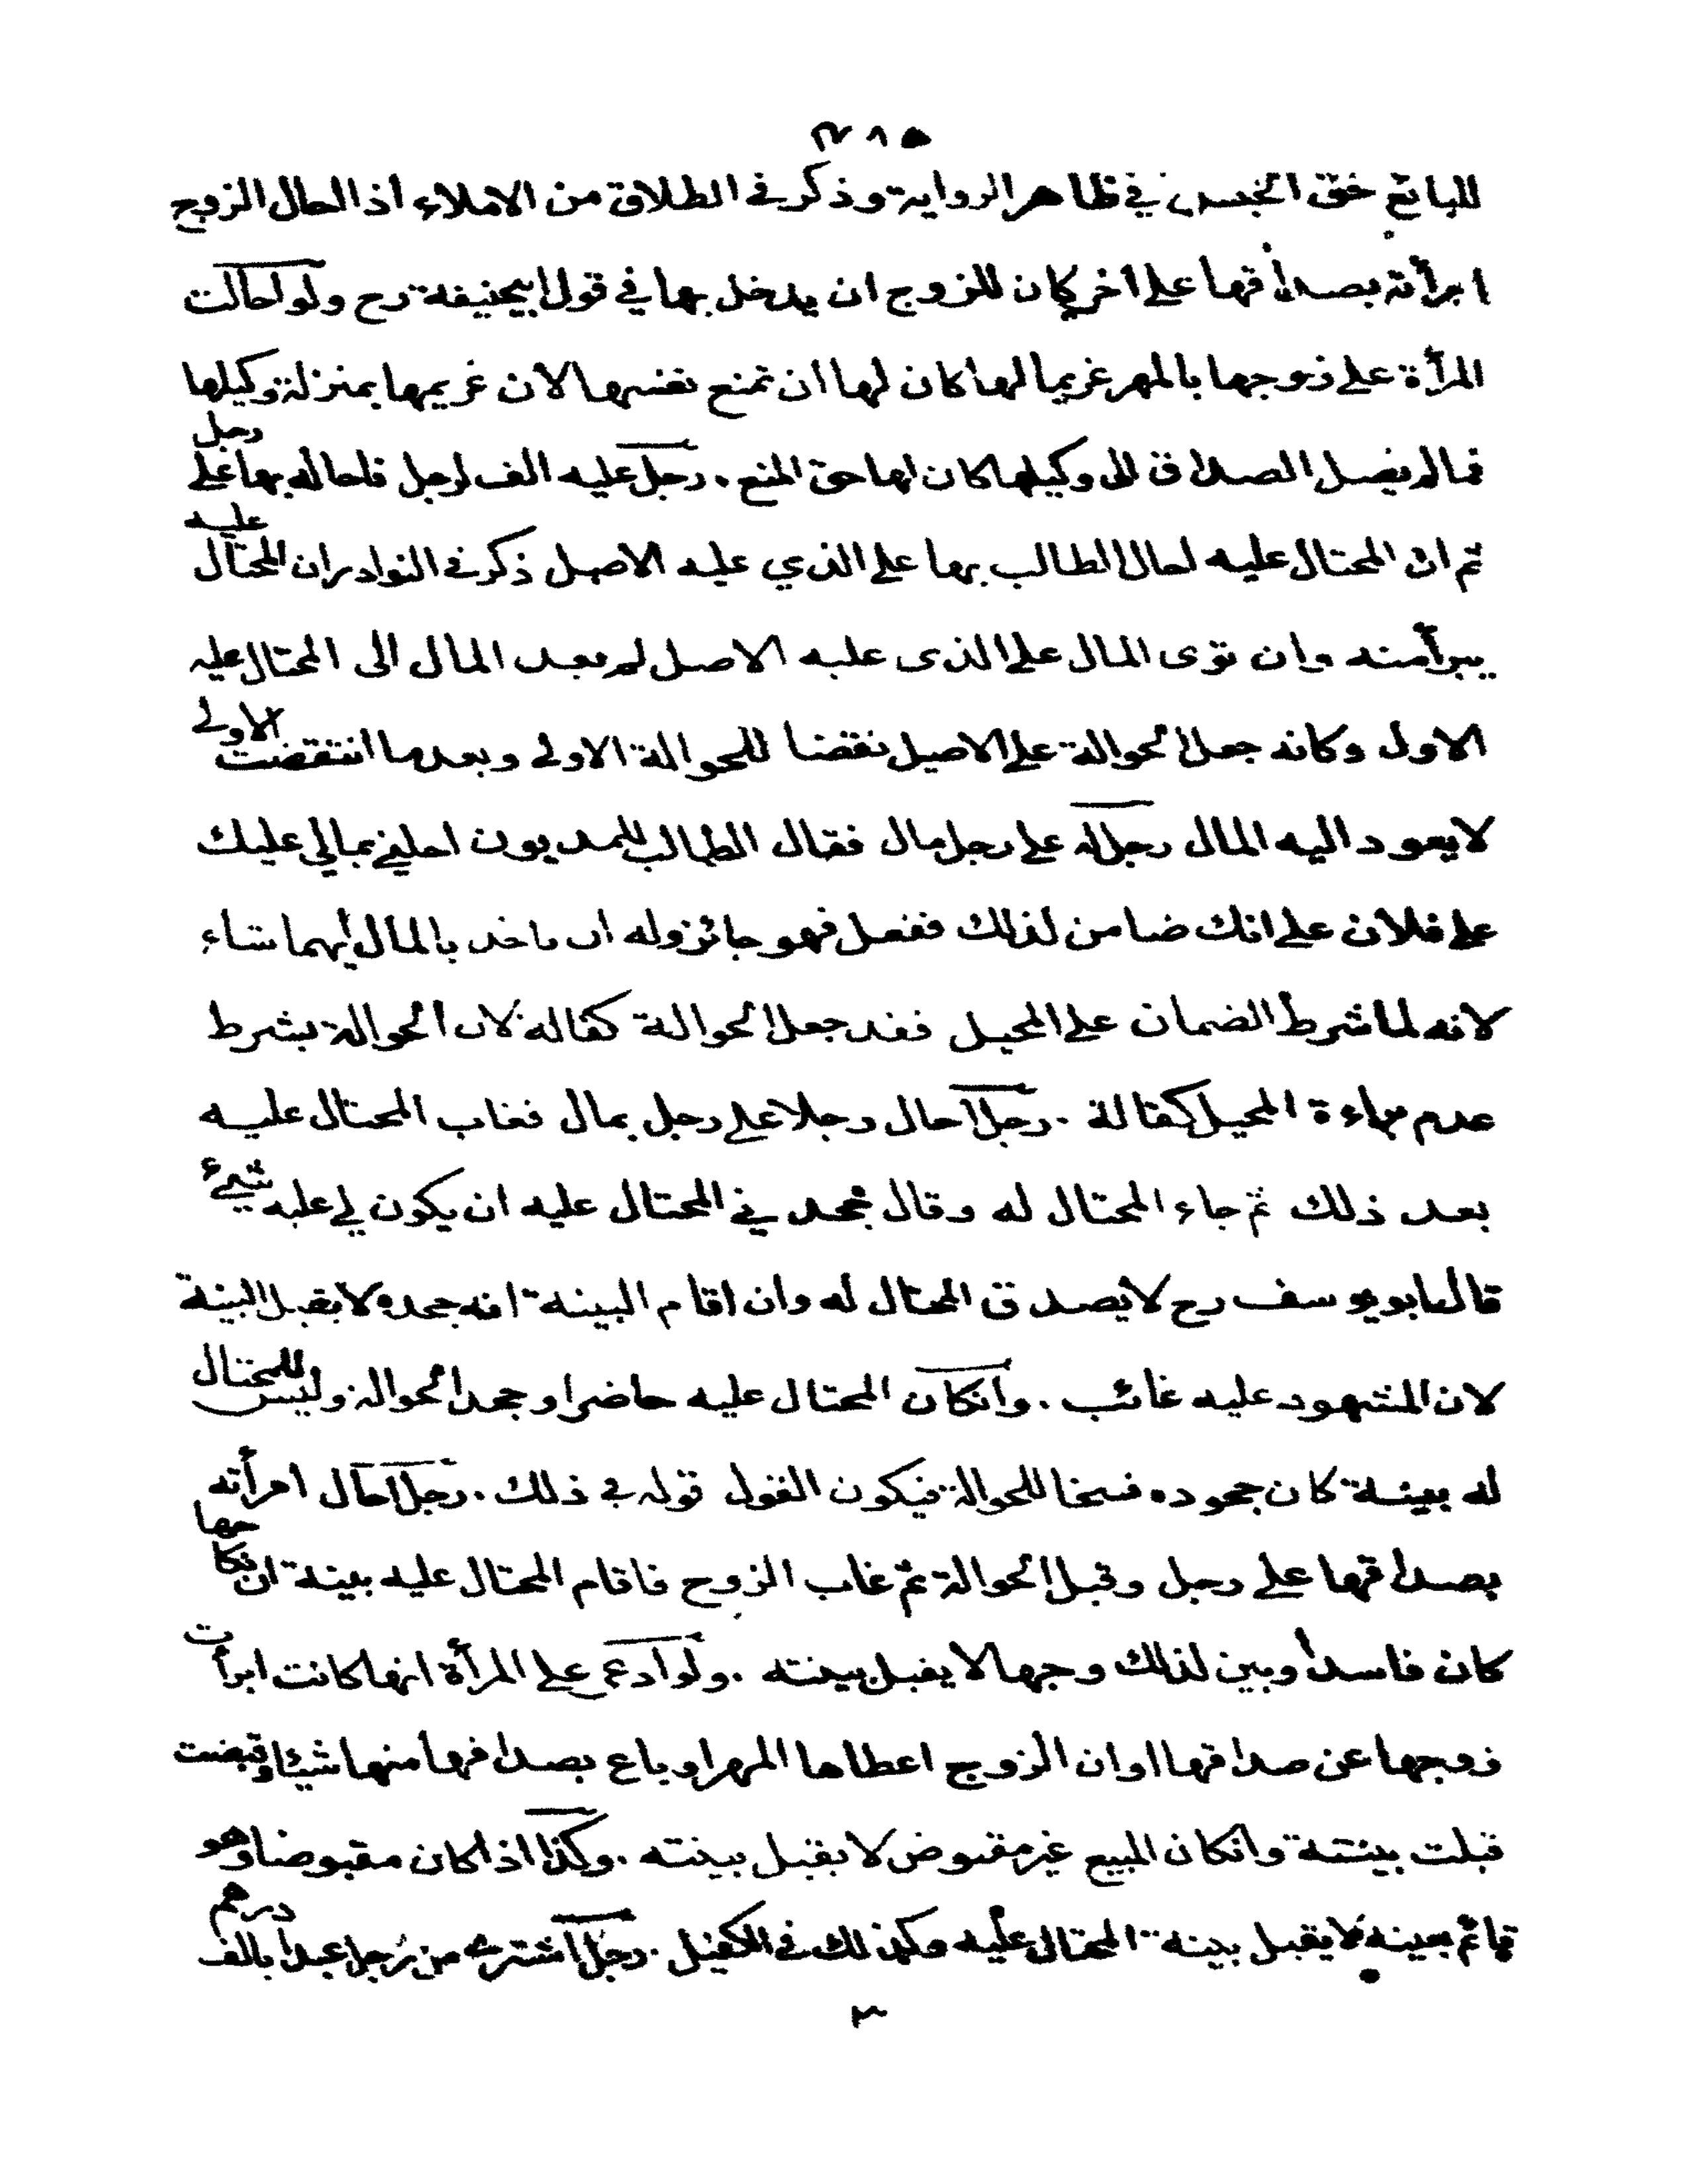 ٣٨٥
للبائع حق الحبس في ظاهر الرواية وذكر في الطلاق من الاملاء اذا احال الزوج
ابرأته بصداقها على اخر كان للزوج ان يدخل بها في قول ابيحنيفة رح ولو احالت
المرأة على زوجها بالمهر غريما لها كان لها ان تمنع نفسها لان غريمها بمنزلة وكيلها
فما لم يصل الصداق الى وكيلها كان لها حق المنع . رجل عليه الف لرجل فاحاله بها على رجل
ثم ان المحتال عليه احال الطالب بها على الذي عليه الاصل ذكر في النوادر ان المحتال عليه
يبرأ منه وان توى المال على الذى عليه الاصل لم يعد المال الى المحتال عليه
الاول وكانه جعل الحوالة على الاصيل نقضا للحوالة الاولى وبعد ما انتقضت الاولى
لا يعود اليه المال رجل له على رجل مال فقال الطالب للمديون احلني بمالي عليك
على فلان على انك ضامن لذلك ففعل فهو جائز وله ان ياخذ بالمال ايهما شاء
لانه لما شرط الضمان على المحيل فقد جعل الحوالة كفالة لان الحوالة بشرط
عدم براءة المحيل كفالة . رجل احال رجلا على رجل بمال فغاب المحتال عليه
بعد ذلك ثم جاء المحتال له وقال جحد ني المحتال عليه ان يكون لي عليه شيئ
قال ابو يوسف رح لا يصدق المحتال له وان اقام البينة انه جحده لا يقبل البينة
لان المشهود عليه غائب . وانكان المحتال عليه حاضرا وجحد الحوالة وليس للمحتال
له بينة كان جحوده فسخا للحوالة فيكون القول قوله في ذلك . رجل احال امرأته
بصداقها على رجل وقبل الحوالة ثم غاب الزوج فاقام المحتال عليه بينة ان نكاحها
كان فاسدا وبين لذلك وجها لا يقبل بينته . ولو ادعى على المرأة انها كانت ابرأت
زوجها عن صداقها او ان الزوج اعطاها المهر او باع بصداقها منها شيئا وقبضت
قبلت بينته وانكان المبيع غير مقبوض لا يقبل بينته . وكذا اذا كان مقبوضا وهو
قائم بعينه لا يقبل بينة المحتال عليه وكذلك في الكفيل . رجل اشترى من رجل عبدا بالف درهم
٣